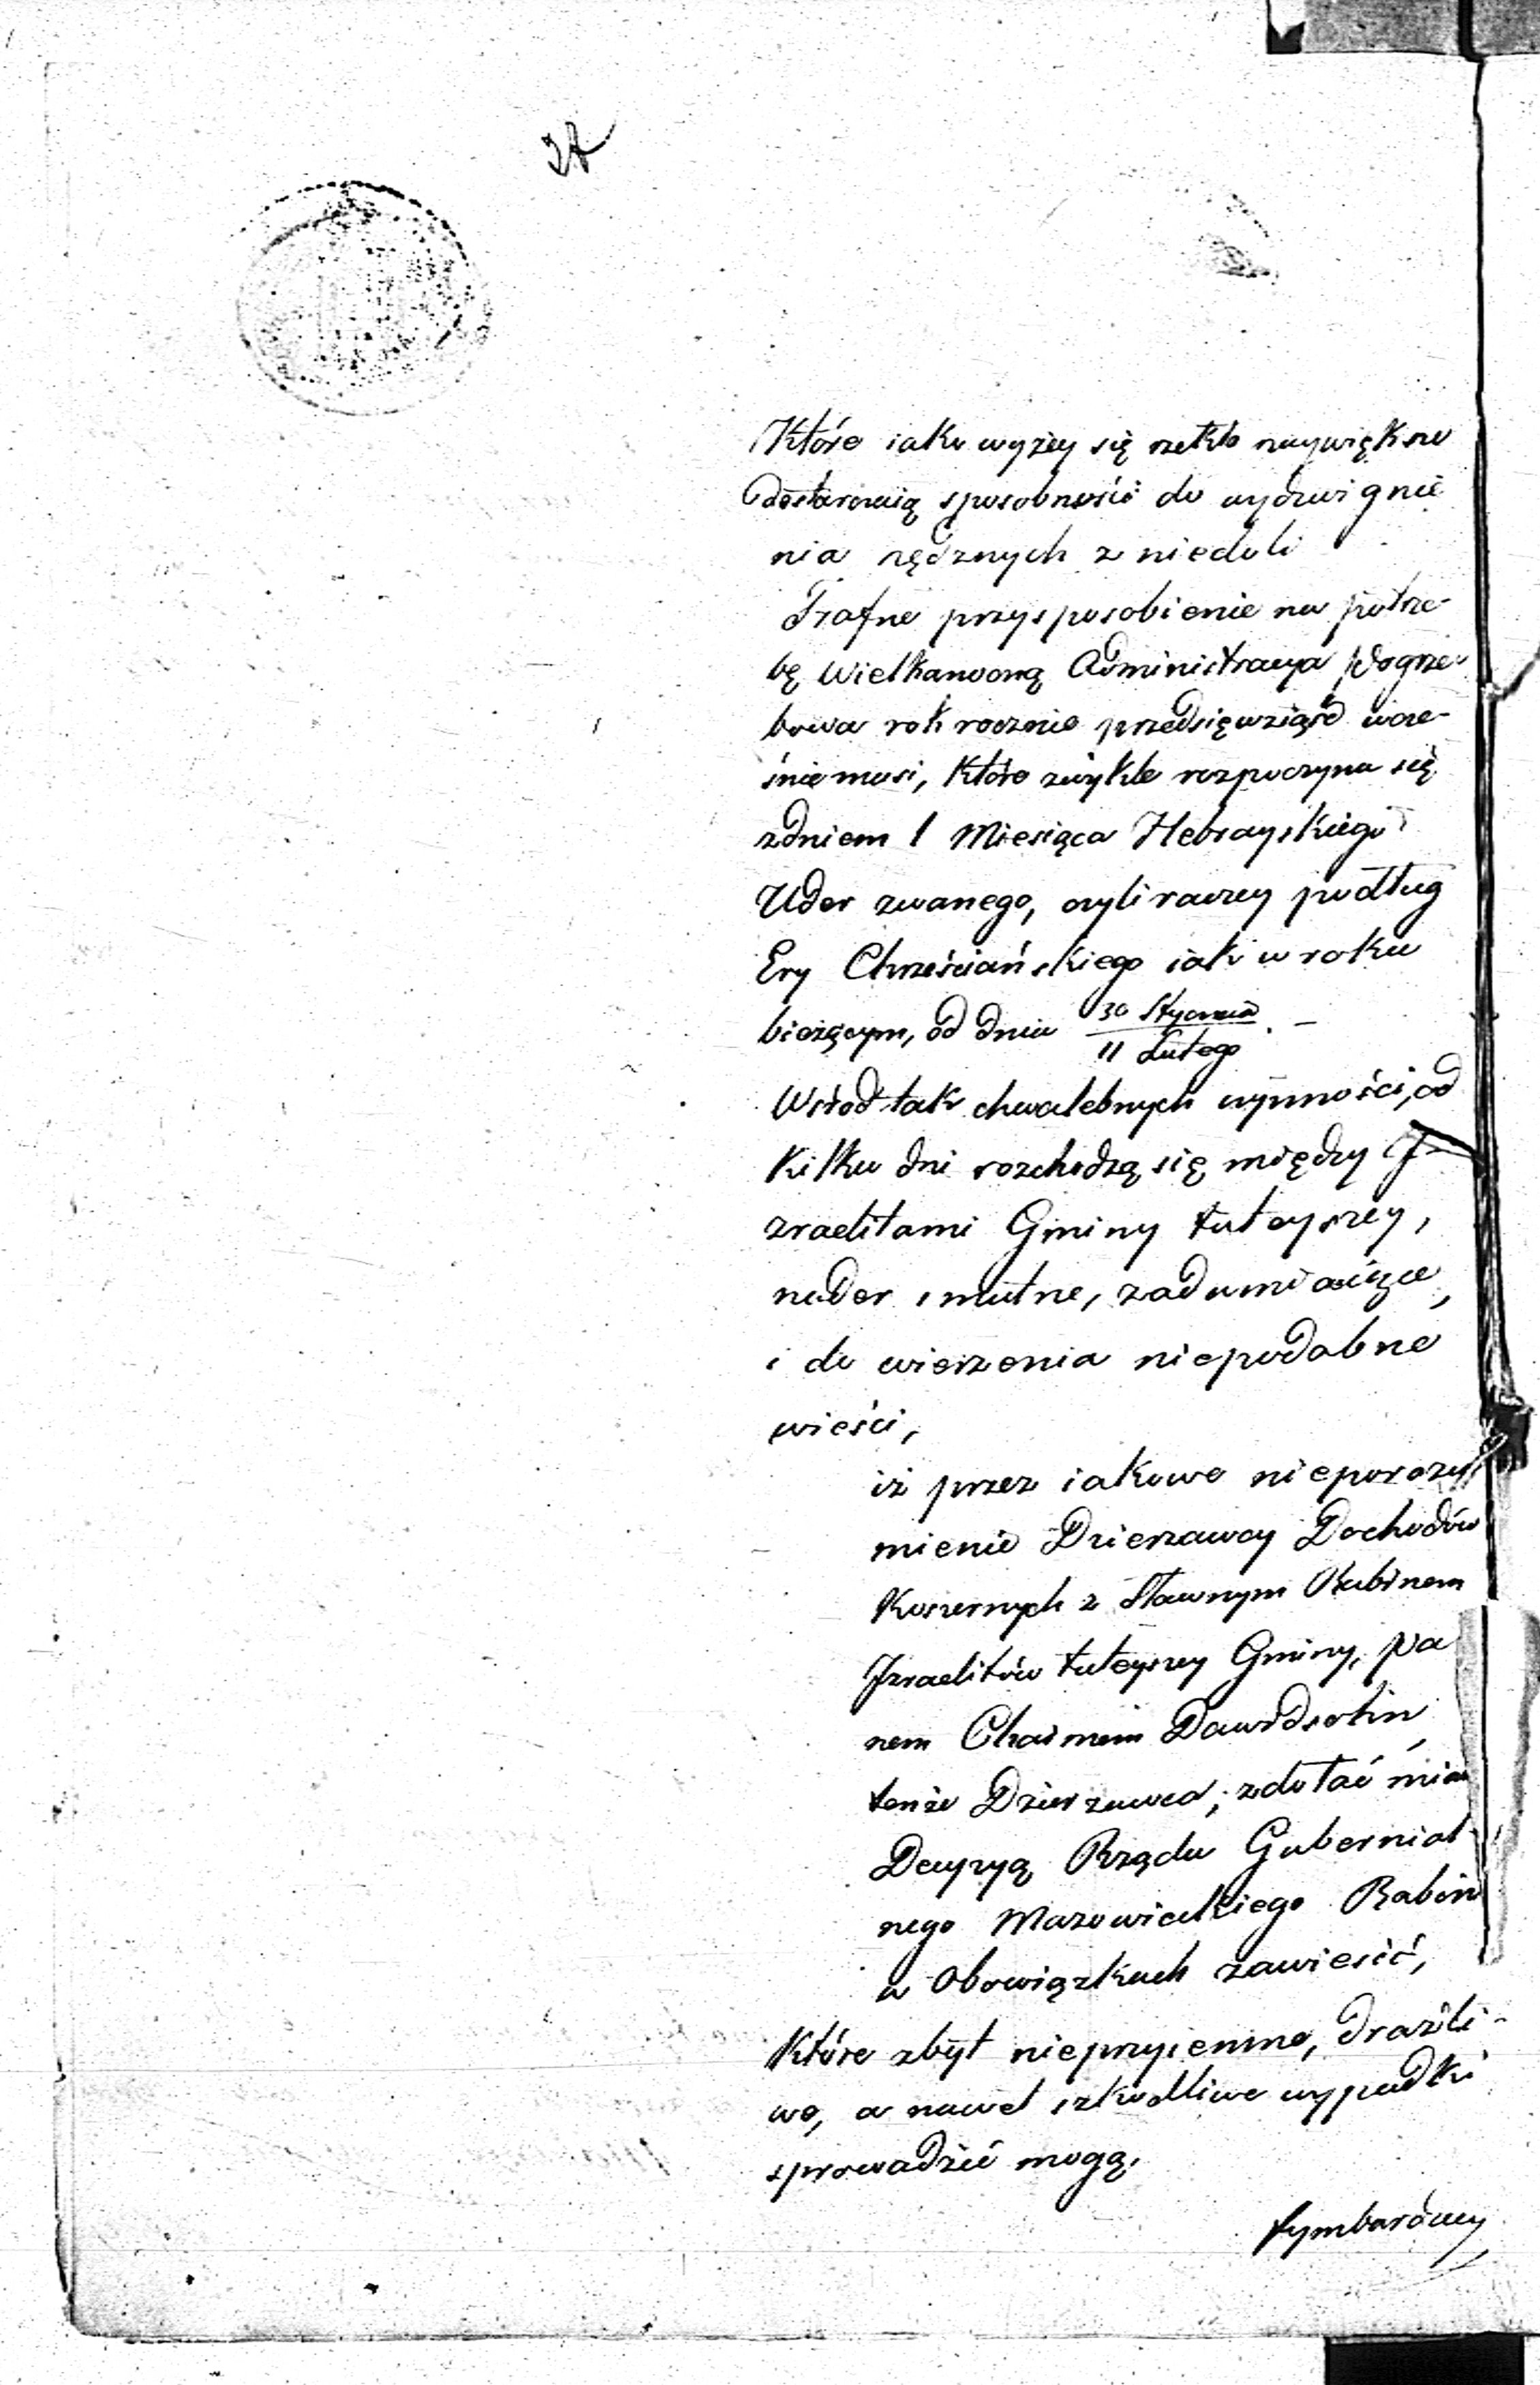 27
Które iako wyżey się rzekło naywiększe
dostarczaią sposobność do wydzwignie
nia nędznych z niedoli
Trafne przysposobienie na potrze-
bę Wielkanocną Administracya Pogrze-
bowa rok rocznie przedsięwziąść wcze-
śnie musi, które zwykle rozpoczyna się
zdniem 1 Miesiąca Hebrayskiego
Uder zwanego, czyli raczey podług
Ery Chrześciańskiego iak w roku
bieżącym, od dnia 30 Stycznia
11 Lutego. –
Wśrod tak chwalebnych czynności, od
kilku dni rozchodzą się między I-
zraelitami Gminy tuteyszey,
nader smutne, zadumiaiące,
i do wierzenia niepodobne
wieści,
iż przez iakowe nieporozu
mienie Dzierzawcy Dochodów
Koszernych z Sławnym Rabinem
Izraelitów tuteyszey Gminy, Pa
nem Chaimem Dawidsohn,
tenże Dzierzawca, zdołać miał
Decyzyą Rządu Gubernial-
nego Mazowieckiego Rabina
w Obowiązkach zawiesić,
Które zbyt nieprzyiemne, drażli-
we, a nawet szkodliwe wypadki
sprowadzić mogą.
tymbardziey